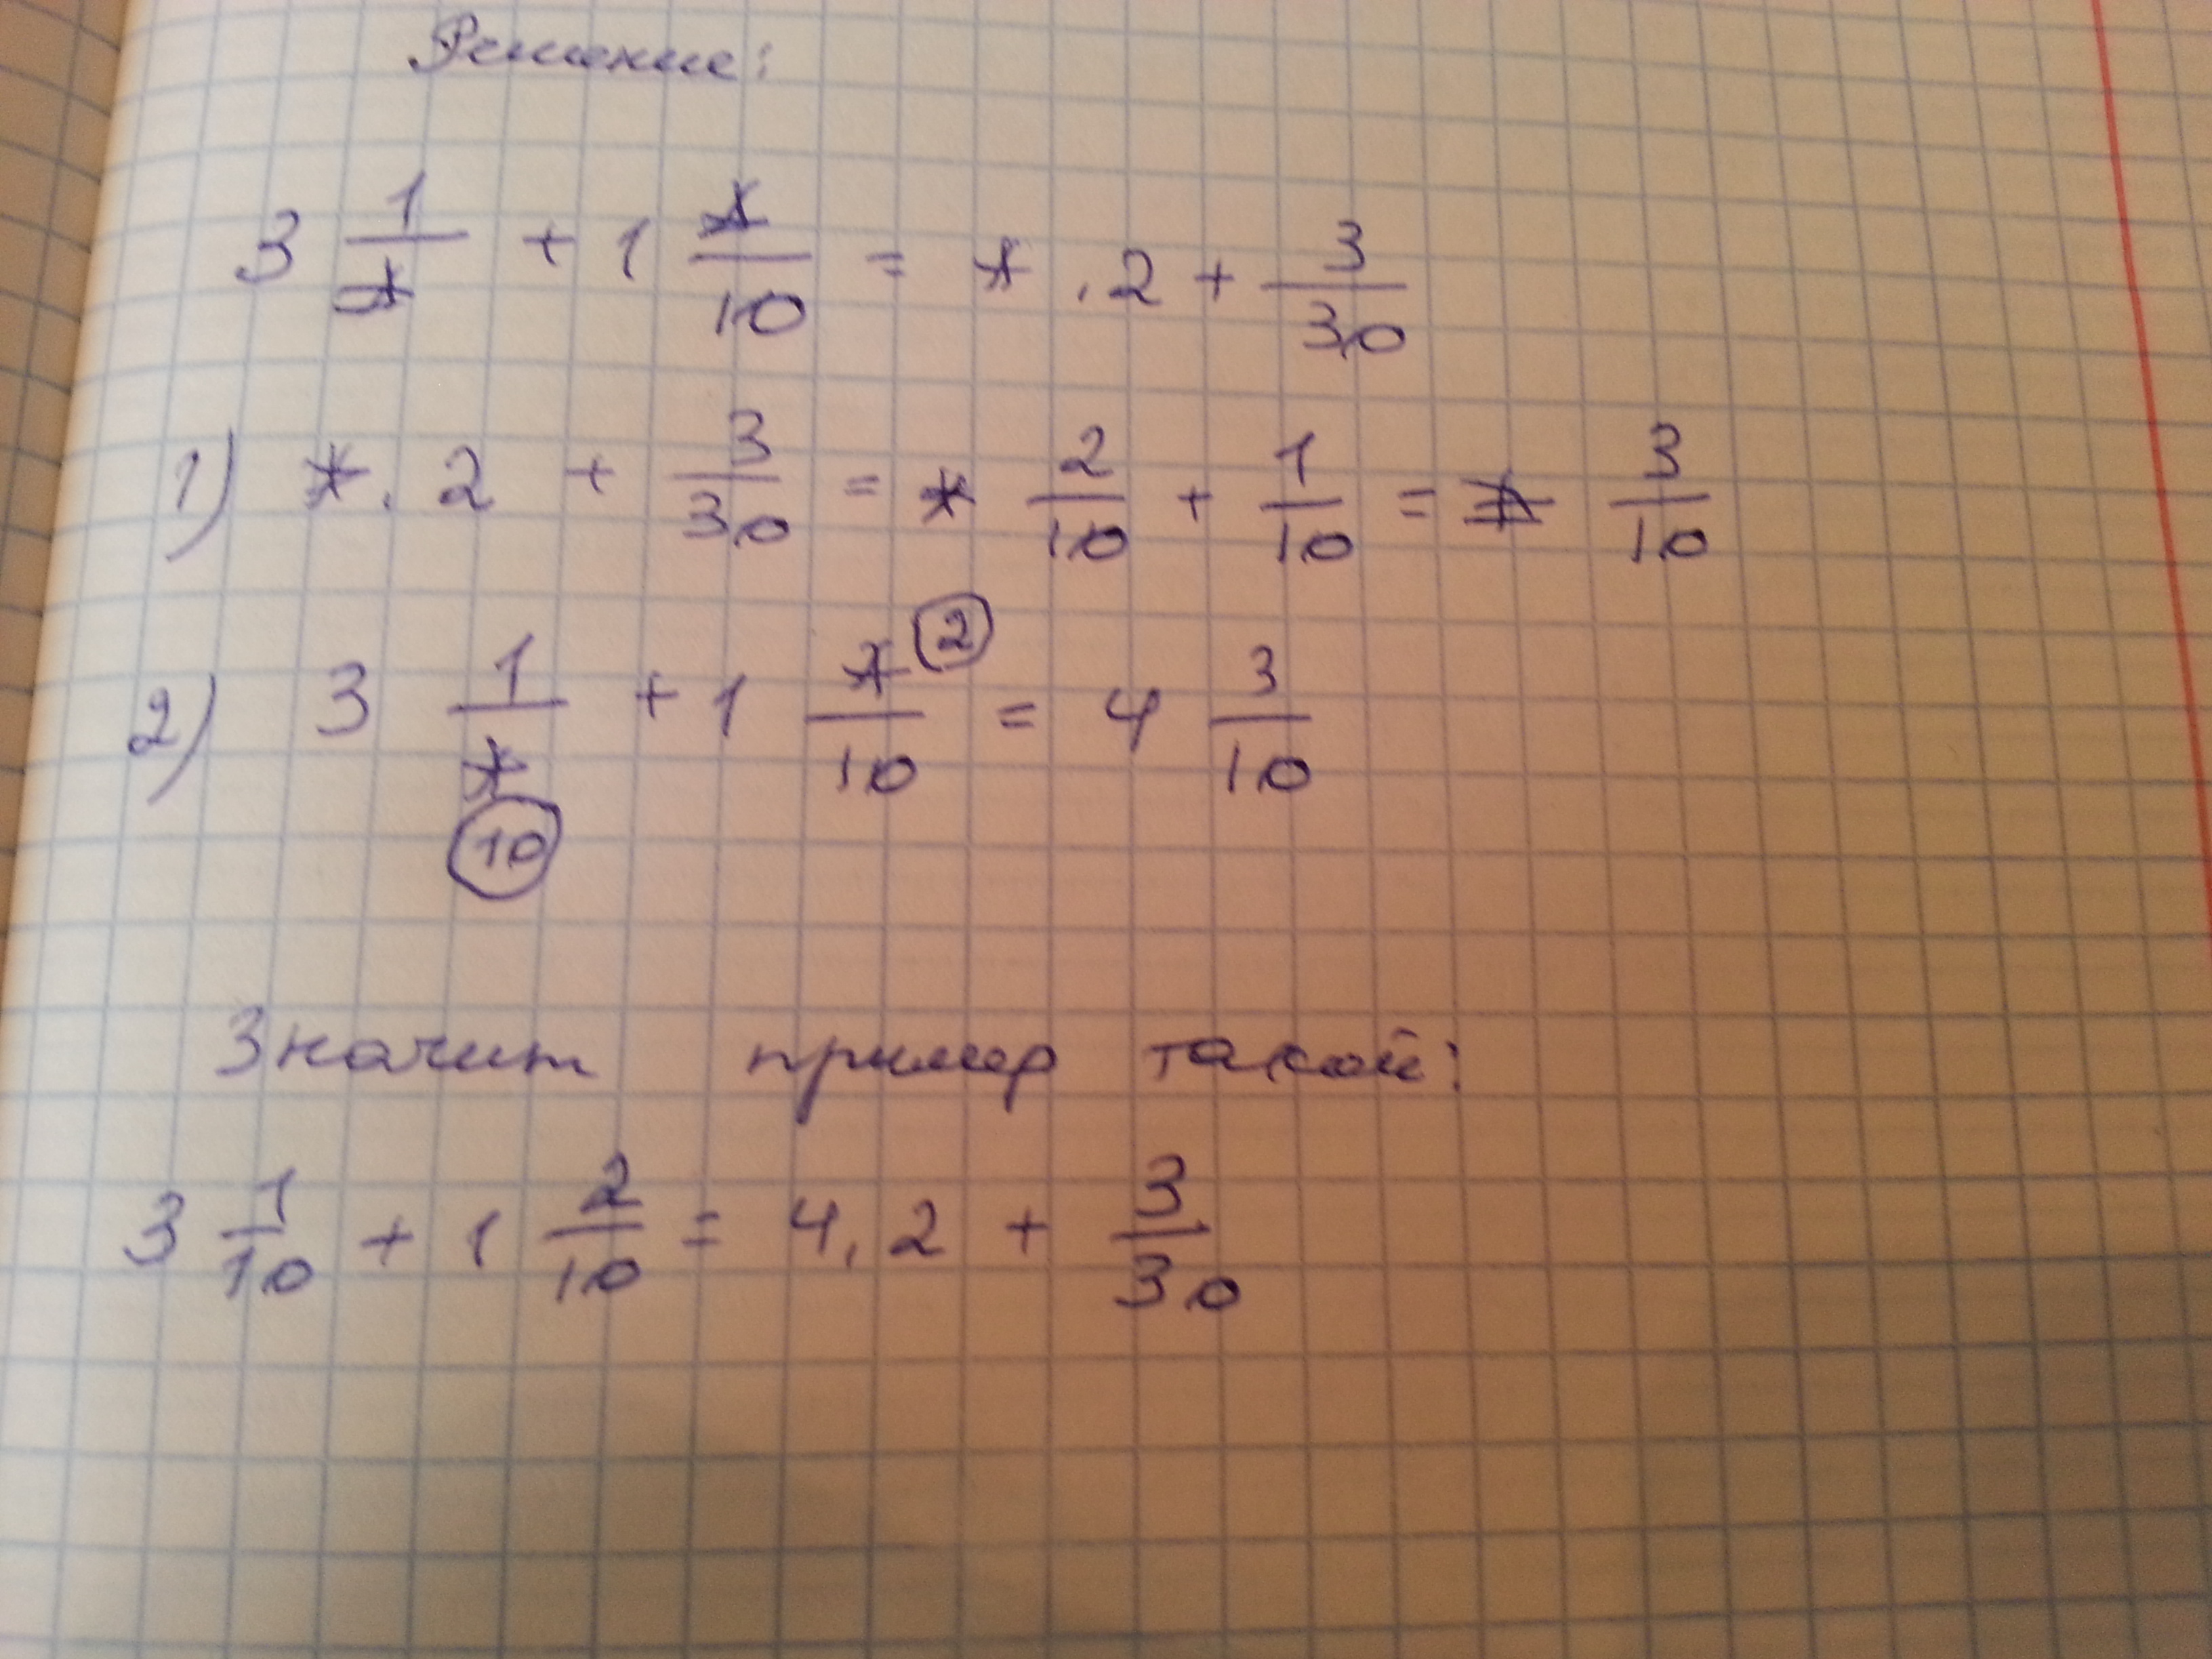 Решение:
3 1/* + 1 */10 = *,2 + 3/30
1) *,2 + 3/30 = * 2/10 + 1/10 = * 3/10
2) 3 1/* (10) + 1 * (2)/10 = 4 3/10
Значит пример такой:
3 1/10 + 1 2/10 = 4,2 + 3/30